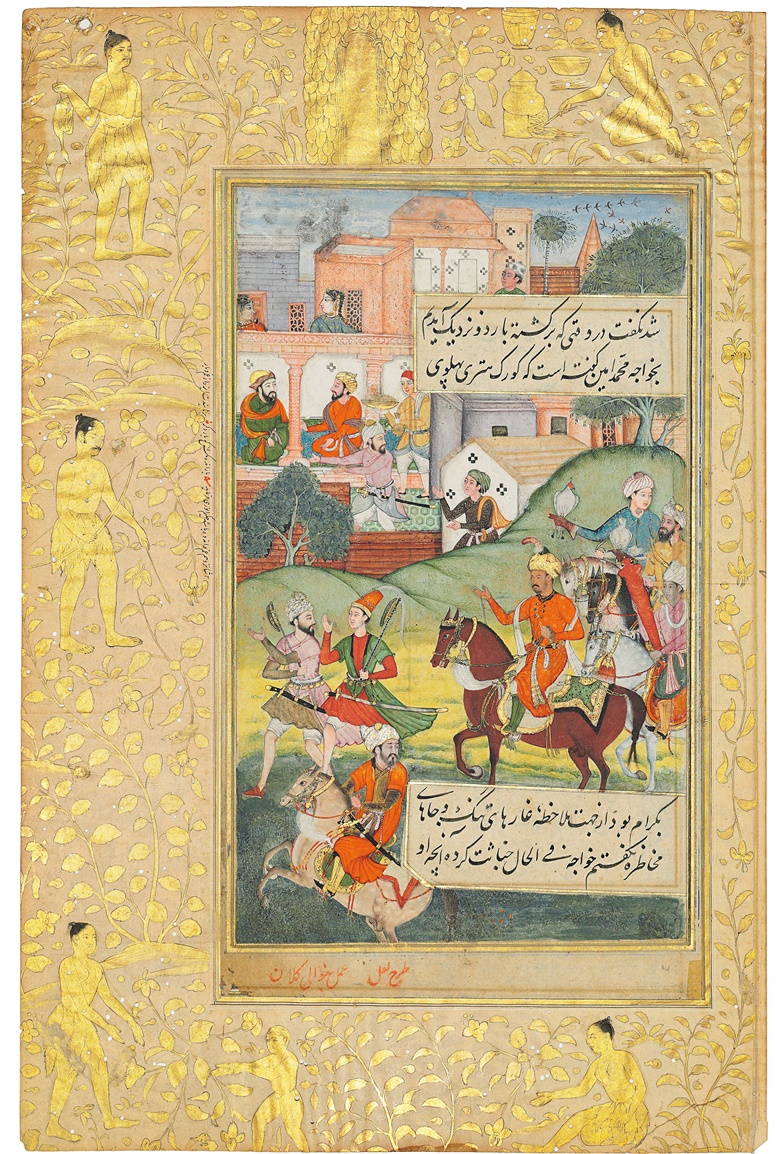 شد نگفت در وقتی که برگشته باردو نزدیک آیدم
بخواجه محمد امین گفته است که کورک ستری پهلوی
بکرام بود از جهت ملاحظه غارهای تنگ و جاهای
مخاطره نگفتم خواجه فی الحال خباثت کرده آنچه او
طرح لعل عمل خوالی کلان